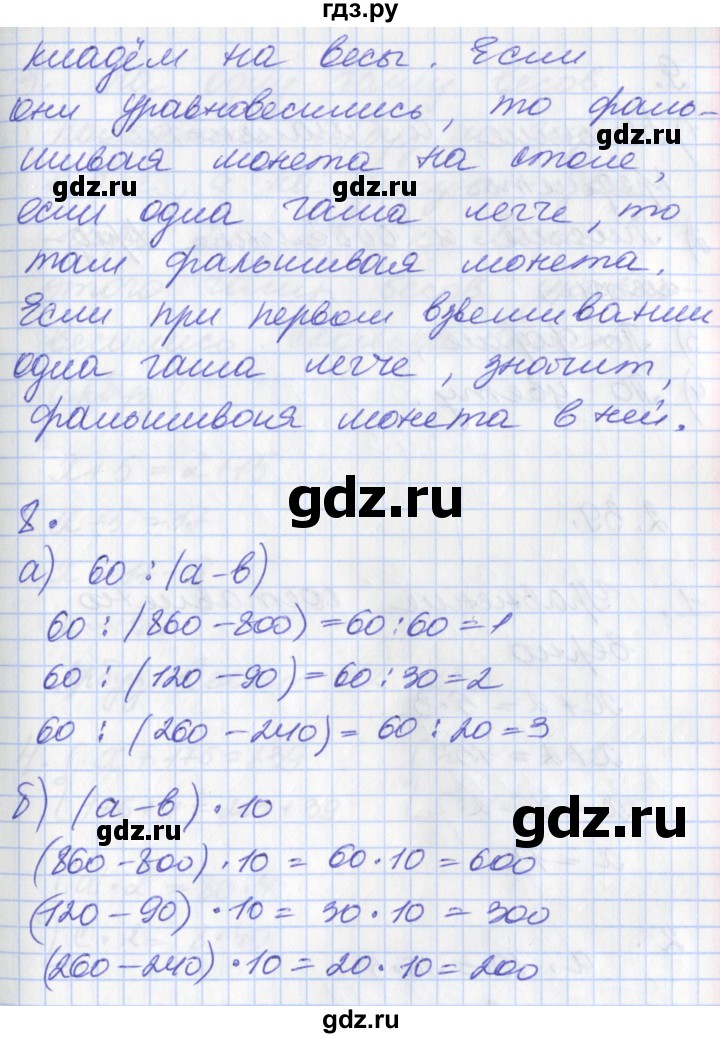 гдз.ру
кладём на весы. Если
они уравновесились, то фаль-
gdz.ru
шивая монета на столе,
gdz.ru gdz.ru
если одна чаша легче, то
там фальшивая монета.
Если при первом взвешивании
одна чаша легче, значит,
фальшивая монета в ней.
gdz.ru
8.
а) 60 : (а-в)
60 : (860-800)=60:60=1
60 : (120-90)=60:30=2
60 : (260-240)= 60:20=3
б) (а-в)·10
gdz.ru gdz.ru
(860-800)·10= 60·10=600
(120-90)·10= 30·10=300
(260-240)·10=20·10=200
gdz.ru